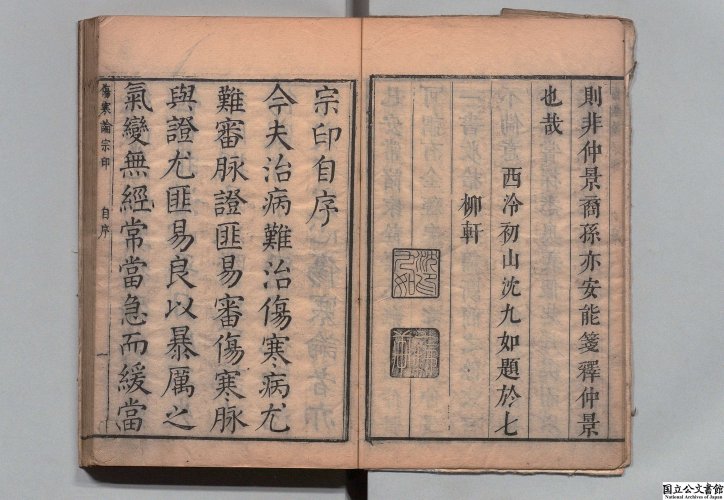 則非仲景裔孫亦安能箋釋仲景
也哉
西泠初山沈九如題於七
柳軒
宗印自序
今夫治病難治傷寒病尤
難審脉證匪易審傷寒脉
與證尤匪易良以暴厲之
氣變無經常當急而緩當
傷寒論宗印 自序 一
国立公文書館
National Archives of Japan